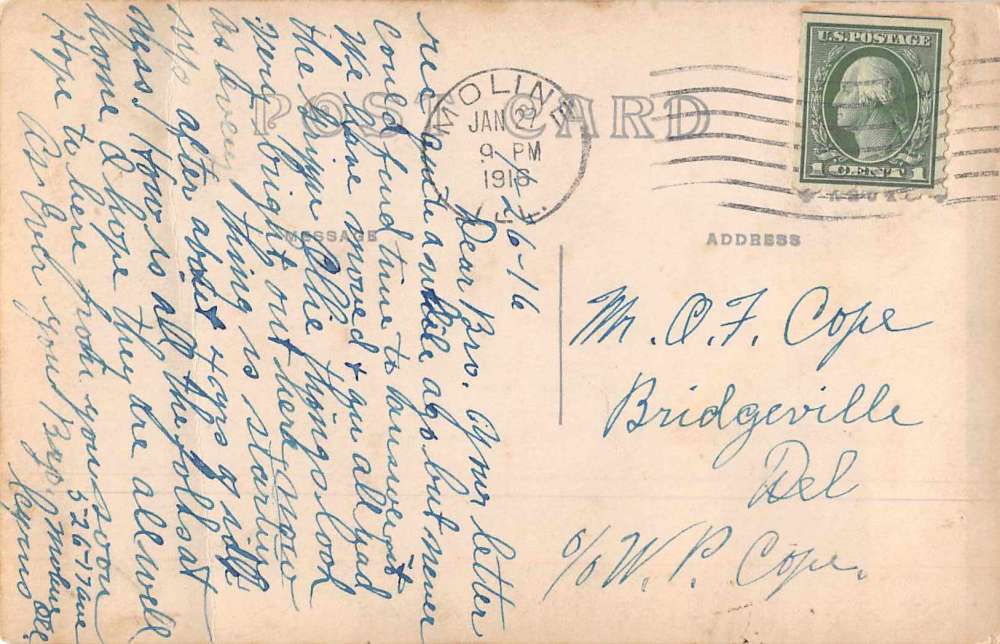 POST CARD
MOLINE
JAN 27
9 PM
1916
ILL.
U.S. POSTAGE
1 CENT 1
MESSAGE
ADDRESS
1/26-16
Dear Bro. Your letter
rec quite a while ago but never
could find time to answer it
We have moved & you all had
the Grippe Ollie things look
very bright out here now
as every thing is starting
up after about 4 yrs of idle
ness. How is all the folks at
home I hope they are all well
Hope to here from you soon
As Ever your Bro.
526-17 ave
Moline Ill.
Mr. O. F. Cope
Bridgeville
Del
c/o W. P. Cope.